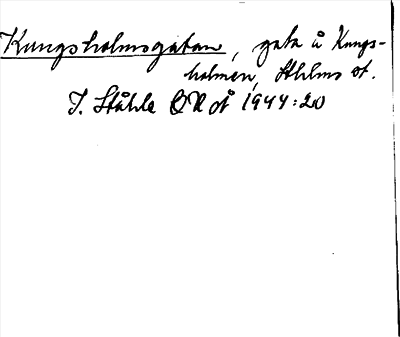 Kungsholmsgatan, gata å Kungs-
holmen, Sthlms st.
I. Ståhle ÖNoÅ 1944:20